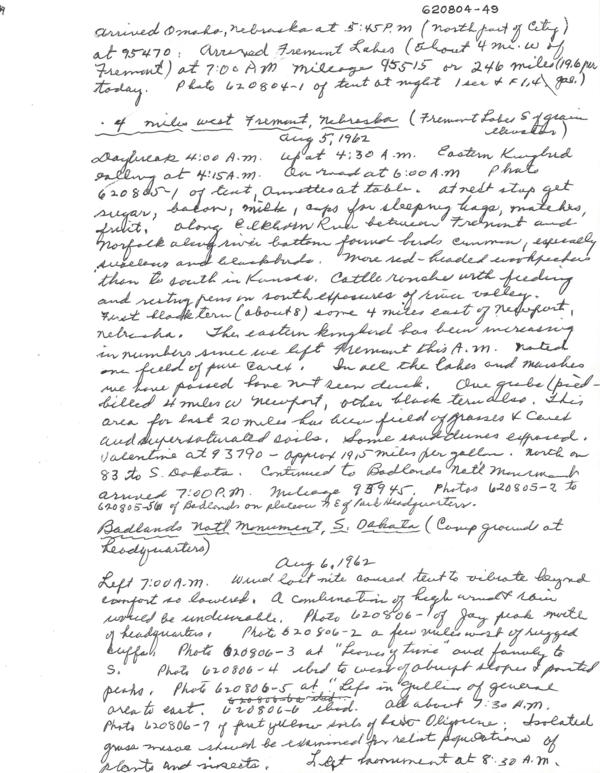 620804-49
arrived Omaha, Nebraska at 5:45 P.M (North part of City)
at 95470. Arrived Fremont Lakes (about 4 mi. W of
Fremont) at 7:00 AM Mileage 95515 or 246 miles (19.6 per
today. Photo 620804-1 of tent at night 1 sec + F 1.4. gal.)
4 miles west Fremont, Nebraska (Fremont Lakes S of grain
elevator)
Aug 5, 1962
Daybreak 4:00 A.M. up at 4:30 A.M. Eastern Kingbird
calling at 4:15 A.M. On road at 6:00 A.M Photo
620805-1 of tent, Annettes at table. at next stop get
sugar, bacon, milk, cups for sleeping bags, matches,
fruit. Along Elkhorn River between Fremont and
Norfolk along river bottom found birds common, especially
and blackbirds. More red-headed woodpeckers
than to south in Kansas. Cattle ranches with feeding
and resting pens on south exposures of river valley.
First black tern (about 8) some 4 miles east of Newport,
Nebraska. The eastern kingbird has been increasing
in numbers since we left Fremont this A.M. Noted
one field of pure Carex. In all the lakes and marshes
we have passed have not seen duck. One grebe (pied-
billed 4 miles W Newport, other black tern also. This
area for last 20 miles has been field of grasses & Carex
and supersaturated soils. Some sand dunes exposed.
Valentine at 93790 - approx 19.5 miles per gallon. North on
83 to S. Dakota. Continued to Badlands Natl Monument
arrived 7:00 P.M. Mileage 95945. Photos 620805-2 to
of Badlands on plateau NE of Park Headquarters.
Badlands Natl Monument, S. Dakota (Camp ground at
headquarters)
Aug 6, 1962
Left 7:00 A.M. Wind last nite caused tent to vibrate beyond
comfort so lowered. A combination of high wind & rain
would be undesirable. Photo 620806-1 of Jay peak north
of headquarters. Photo 620806-2 a few miles west of rugged
Photo 620806-3 at "time" and family to
S. Photo 620806-4 ibid to west of abrupt slopes & pointed
peaks. Photo 620806-5 at "Life in gullies of general
area to east. 620806-6 ibid. all about 7:30 A.M.
Photo 620806-7 of first yellow soils of Oligocene. Isolated
grass mesas should be examined for relict populations of
plants and insects. Left monument at 8:30 A.M.